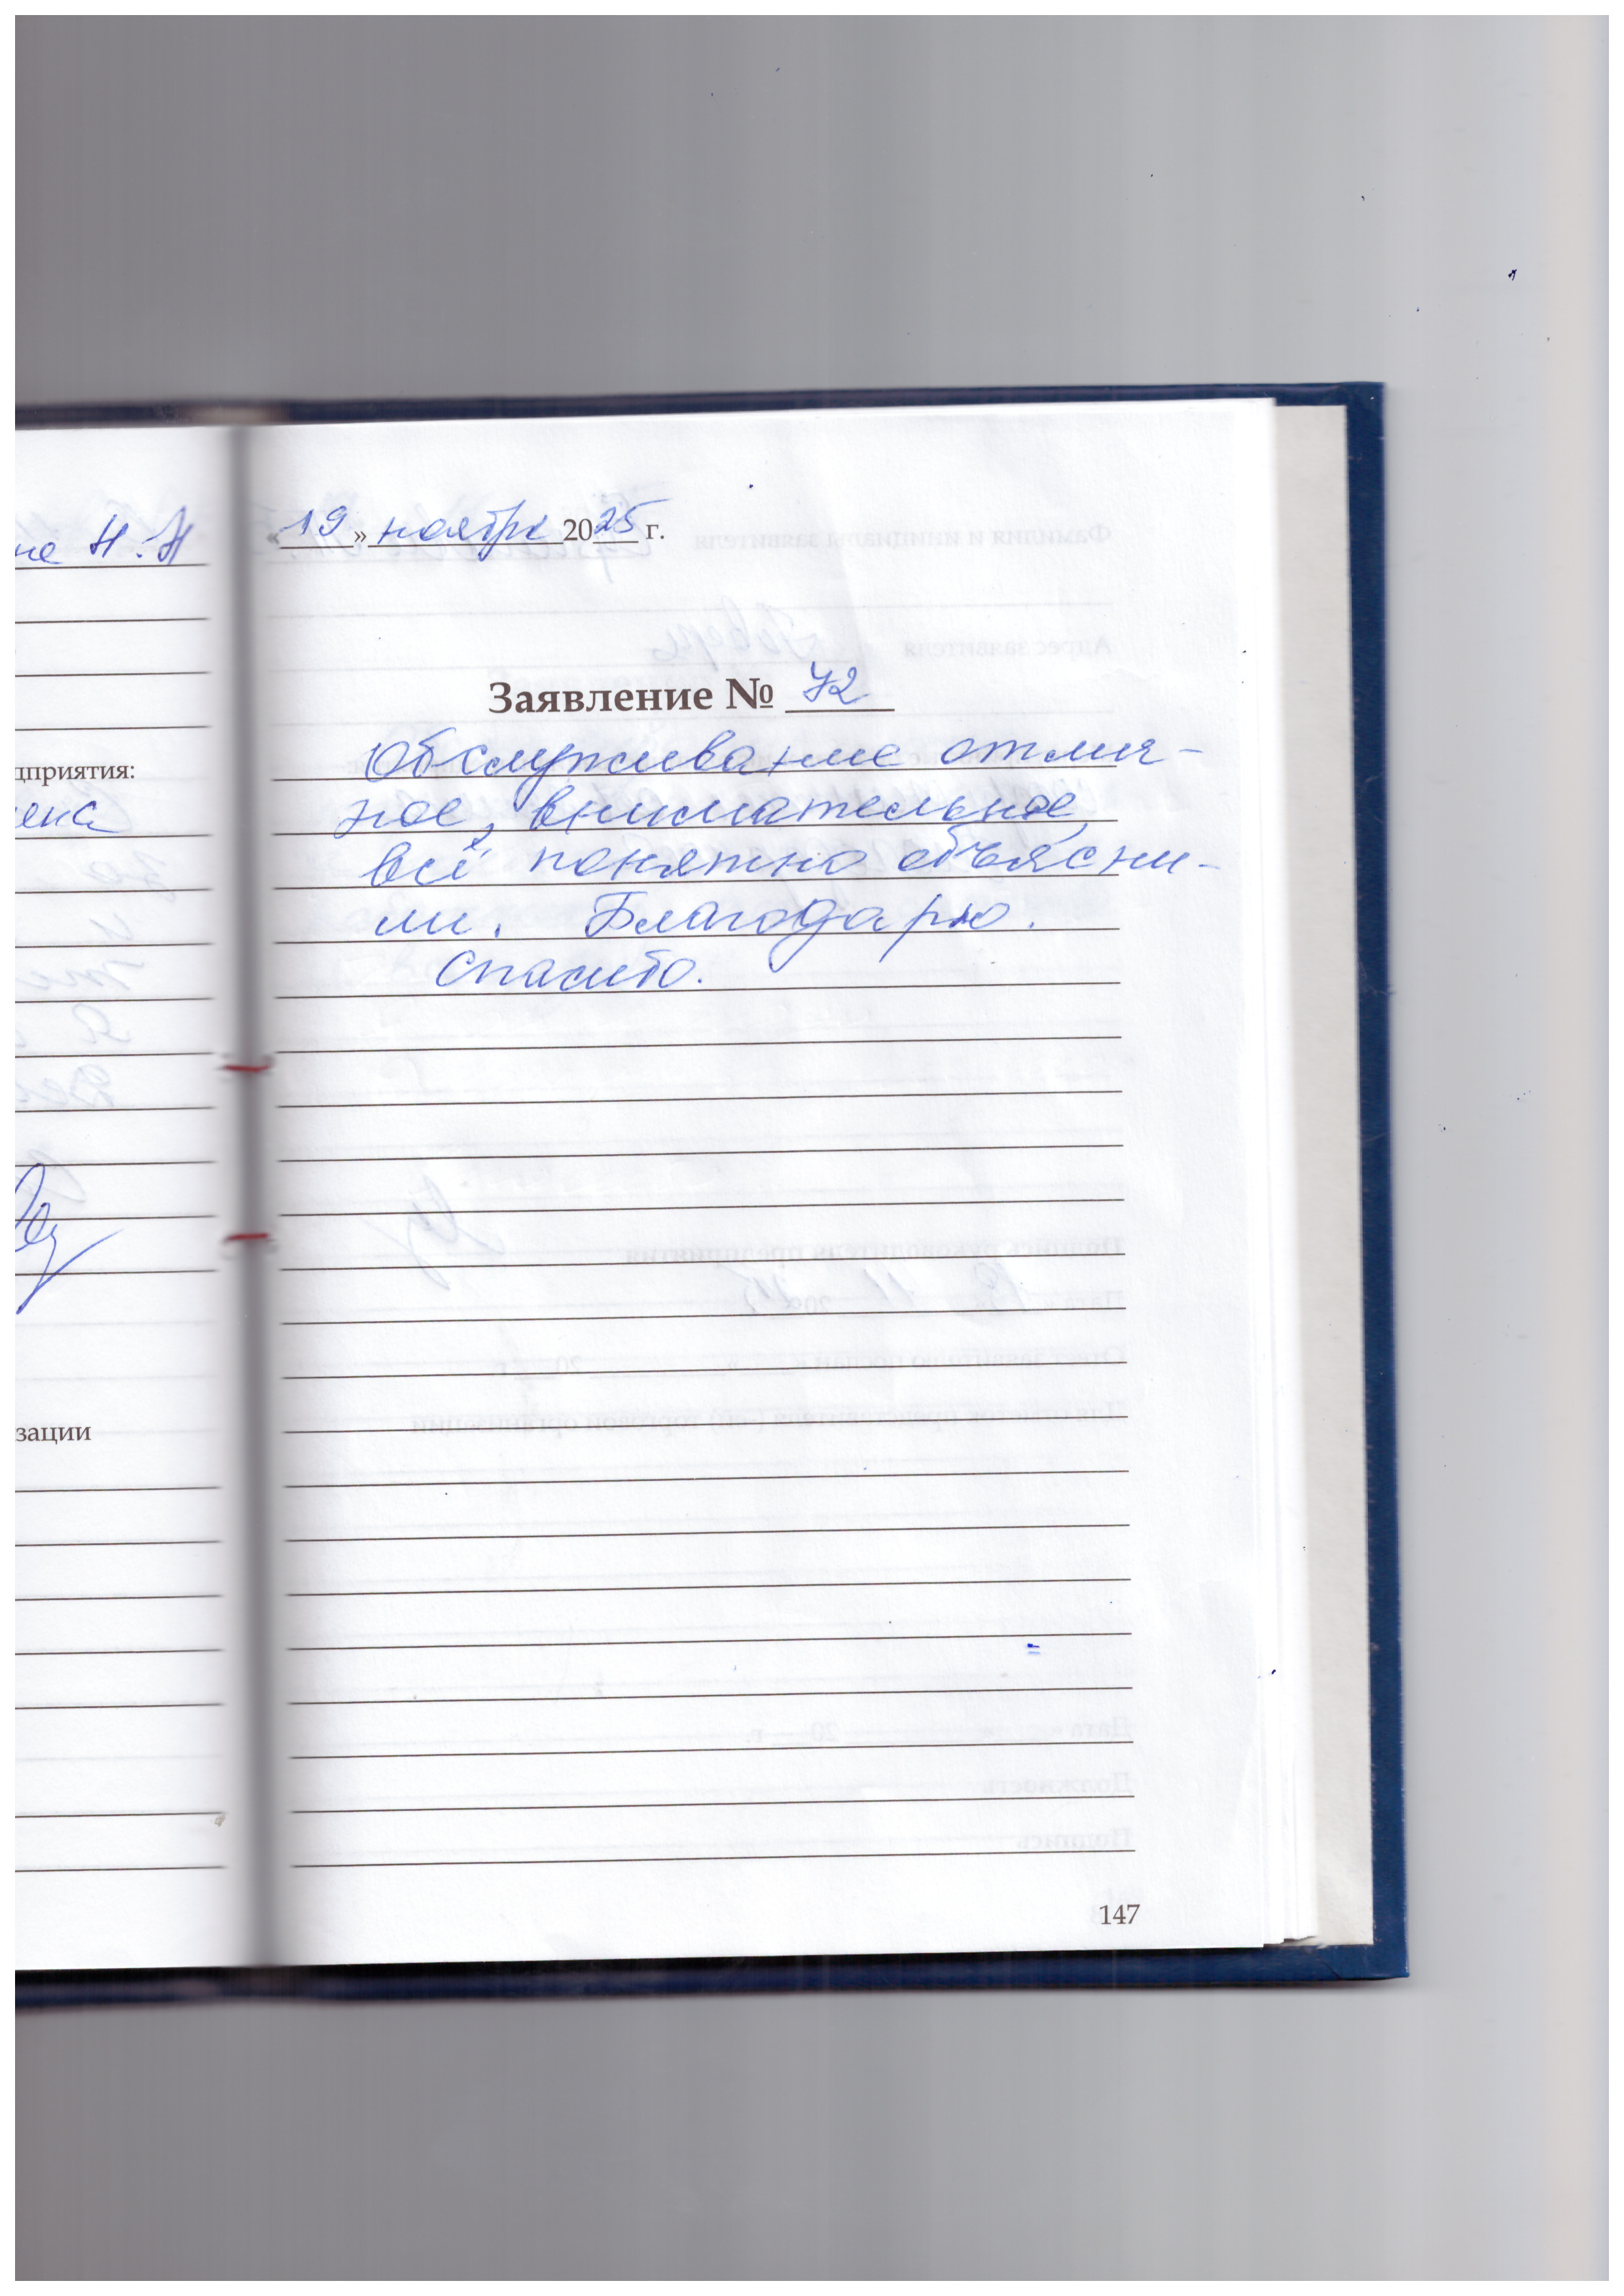 не Н.Н
дприятия:
зации
«19» ноября 2025 г.
Заявление № 72
Обслуживание отлич-
ное, внимательное,
всё понятно объясни-
ли. Благодарю.
Спасибо.
147